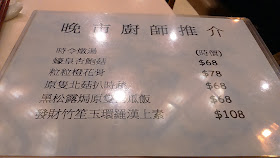 晚市廚師推介
時令燉湯 (時價)
蠔皇吉鮑菇 $68
粒粒橙花骨 $78
原隻北菇扒時蔬 $68
黑松露焗原隻 飯 $68
發財竹笙玉環羅漢上素 $108